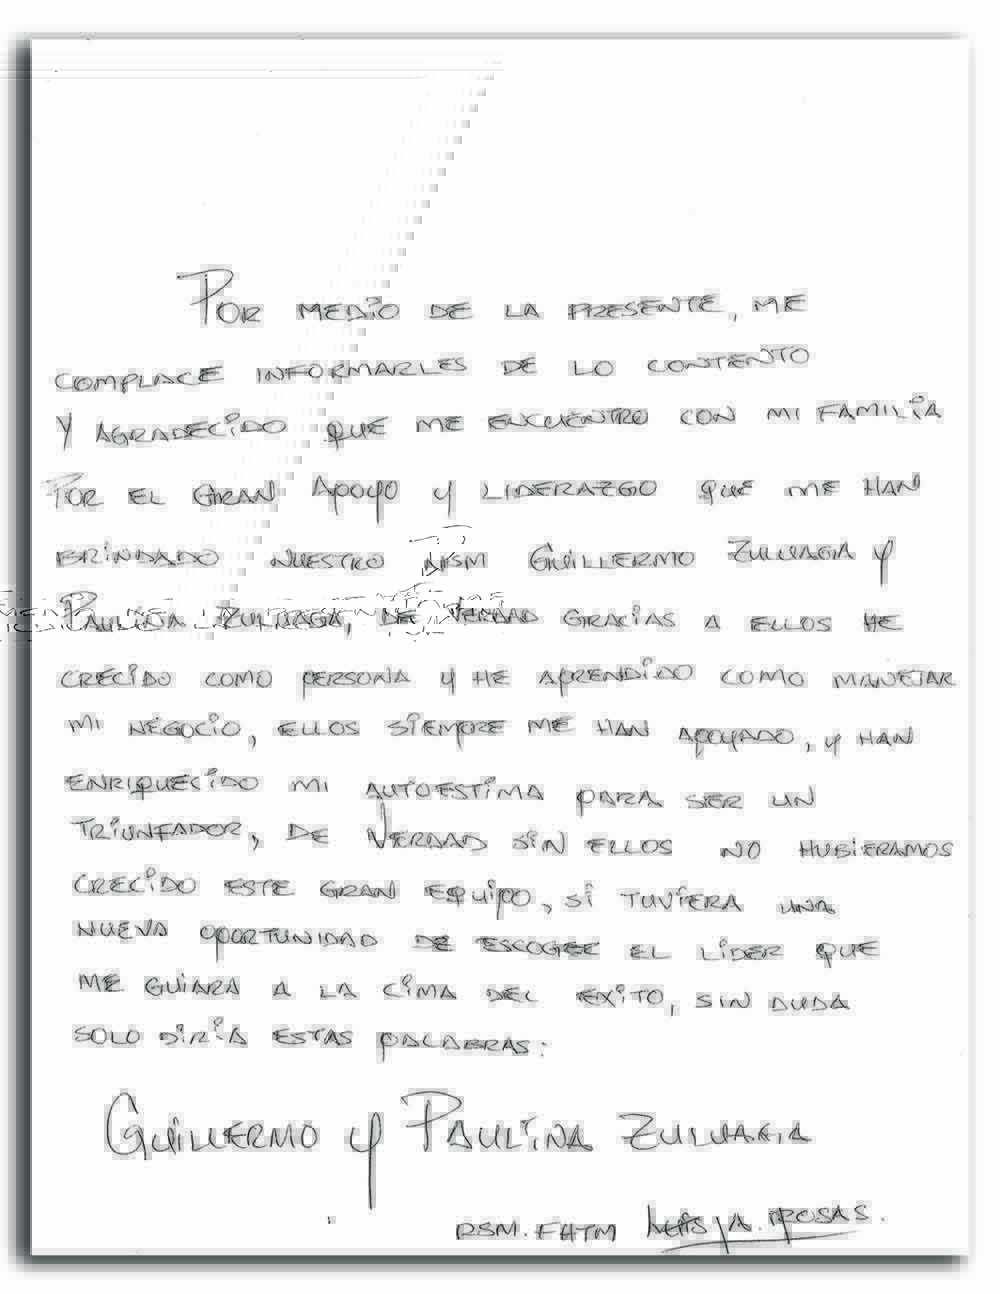 POR MEDIO DE LA PRESENTE, ME
COMPLACE INFORMARLES DE LO CONTENTO
Y AGRADECIDO QUE ME ENCUENTRO CON MI FAMILIA
POR EL GRAN APOYO Y LIDERAZGO QUE ME HAN
BRINDADO NUESTRO RSM GUILLERMO ZULUAGA Y
PAULINA ZULUAGA, DE VERDAD GRACIAS A ELLOS HE
CRECIDO COMO PERSONA Y HE APRENDIDO COMO MANEJAR
MI NEGOCIO, ELLOS SIEMPRE ME HAN APOYADO, Y HAN
ENRIQUECIDO MI AUTOESTIMA PARA SER UN
TRIUNFADOR, DE VERDAD SIN ELLOS NO HUBIERAMOS
CRECIDO ESTE GRAN EQUIPO, SI TUVIERA UNA
NUEVA OPORTUNIDAD DE ESCOGER EL LIDER QUE
ME GUIARA A LA CIMA DEL EXITO, SIN DUDA
SOLO DIRIA ESTAS PALABRAS:
GUILLERMO Y PAULINA ZULUAGA
RSM. FHTM LUIS A. ROSAS.